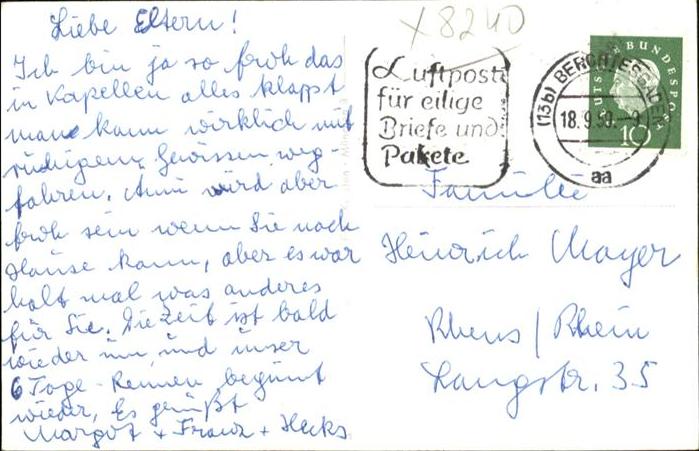 Liebe Eltern!
Ich bin ja so froh das
in Kapellen alles klappt
man kann wirklich mit
ruhigem Gewissen weg-
fahren. Anni wird aber
froh sein wenn Sie nach
Hause kann, aber es war
halt mal was anderes
für Sie. Die Zeit ist bald
wieder um, und unser
6 Tage-Rennen beginnt
wieder, Es grüßt
Margot + Franz + Hecks
X 8240
Luftpost
für eilige
Briefe und
Pakete
(13b) BERCHTESGADEN
18.9.59.-9
aa
DEUTSCHE BUNDESPOST
10
Familie
Heinrich Mayer
Rhens / Rhein
Langstr. 35